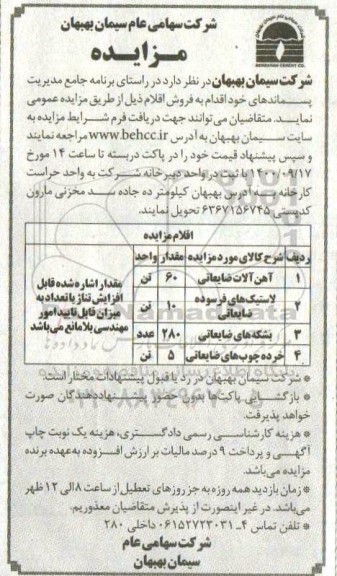 شرکت سهامی عام سیمان بهبهان
مزایده
BEHBAHAN CEMENT CO.
شرکت سیمان بهبهان در نظر دارد در راستای برنامه جامع مدیریت
پسماندهای خود اقدام به فروش اقلام ذیل از طریق مزایده عمومی
نماید. متقاضیان می‌توانند جهت دریافت فرم شرایط مزایده به
سایت سیمان بهبهان به آدرس www.behcc.ir مراجعه نمایند
و سپس پیشنهاد قیمت خود را در پاکت دربسته تا ساعت ۱۴ مورخ
۱۴۰۰/۰۹/۱۷ با ثبت در واحد دبیرخانه شرکت به واحد حراست
کارخانه به آدرس بهبهان کیلومتر ده جاده سد مخزنی مارون
کدپستی ۶۳۶۷۱۵۶۷۴۵ تحویل نمایند.
اقلام مزایده
ردیف شرح کالای مورد مزایده مقدار واحد
۱ آهن آلات ضایعاتی ۶۰ تن
۲ لاستیک‌های فرسوده ضایعاتی ۱۰ تن
۳ بشکه‌های ضایعاتی ۲۸۰ عدد
۴ خرده چوب‌های ضایعاتی ۵ تن
مقدار اشاره شده قابل
افزایش تناژ یا تعداد به
میزان قابل تایید امور
مهندسی بلامانع می‌باشد
* شرکت سیمان بهبهان در رد یا قبول پیشنهادات مختار است.
* بازگشایی پاکت‌ها بدون حضور پیشنهاددهندگان صورت
خواهد پذیرفت.
* هزینه کارشناسی رسمی دادگستری، هزینه یک نوبت چاپ
آگهی و پرداخت ۹ درصد مالیات بر ارزش افزوده به عهده برنده
مزایده می‌باشد.
* زمان بازدید همه روزه به جز روزهای تعطیل از ساعت ۸ الی ۱۲ ظهر
می‌باشد. در غیر اینصورت از پذیرش متقاضیان معذوریم.
* تلفن تماس ۴ـ۰۶۱۵۲۷۲۳۰۳۱ داخلی ۲۸۰
شرکت سهامی عام
سیمان بهبهان